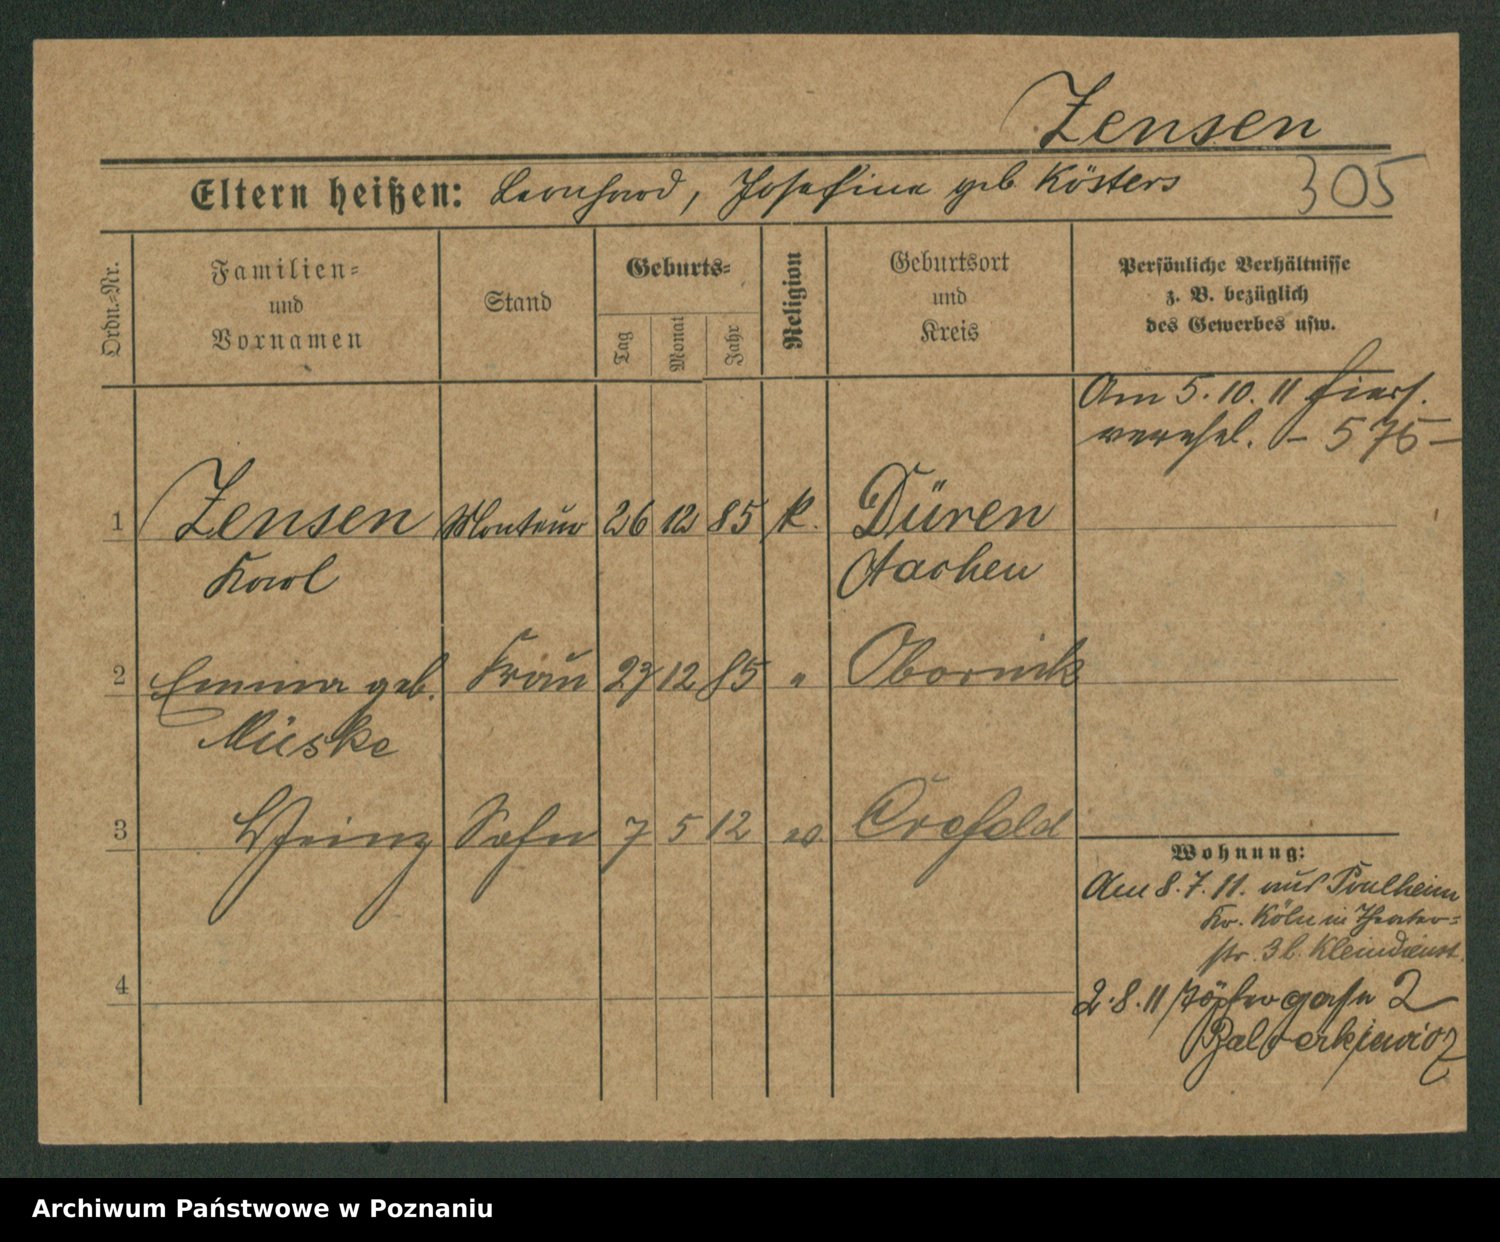 Zensen
Eltern heißen: Leonhard, Josefine geb Kösters 305
Ordn.-Nr.
Familien-
und
Vornamen
Stand
Geburts-
Tag
Monat
Jahr
Religion
Geburtsort
und
Kreis
Persönliche Verhältnisse
z. B. bezüglich
des Gewerbes usw.
Am 5. 10. 11 hierf.
verehel. - 575 -
1 Zensen Monteur 26 12 85 k. Düren
Karl Aachen
2 Emma geb. Frau 27 12 85 " Obornik
Müske
3 Heinz Sohn 7 5 12 ev. Crefeld
Wohnung:
Am 8. 7. 11. aus Poulheim
Kr. Köln in Theater-
str. 3 b. Kleindienst.
4
2. 8. 11 Töpfergasse 2
Archiwum Państwowe w Poznaniu